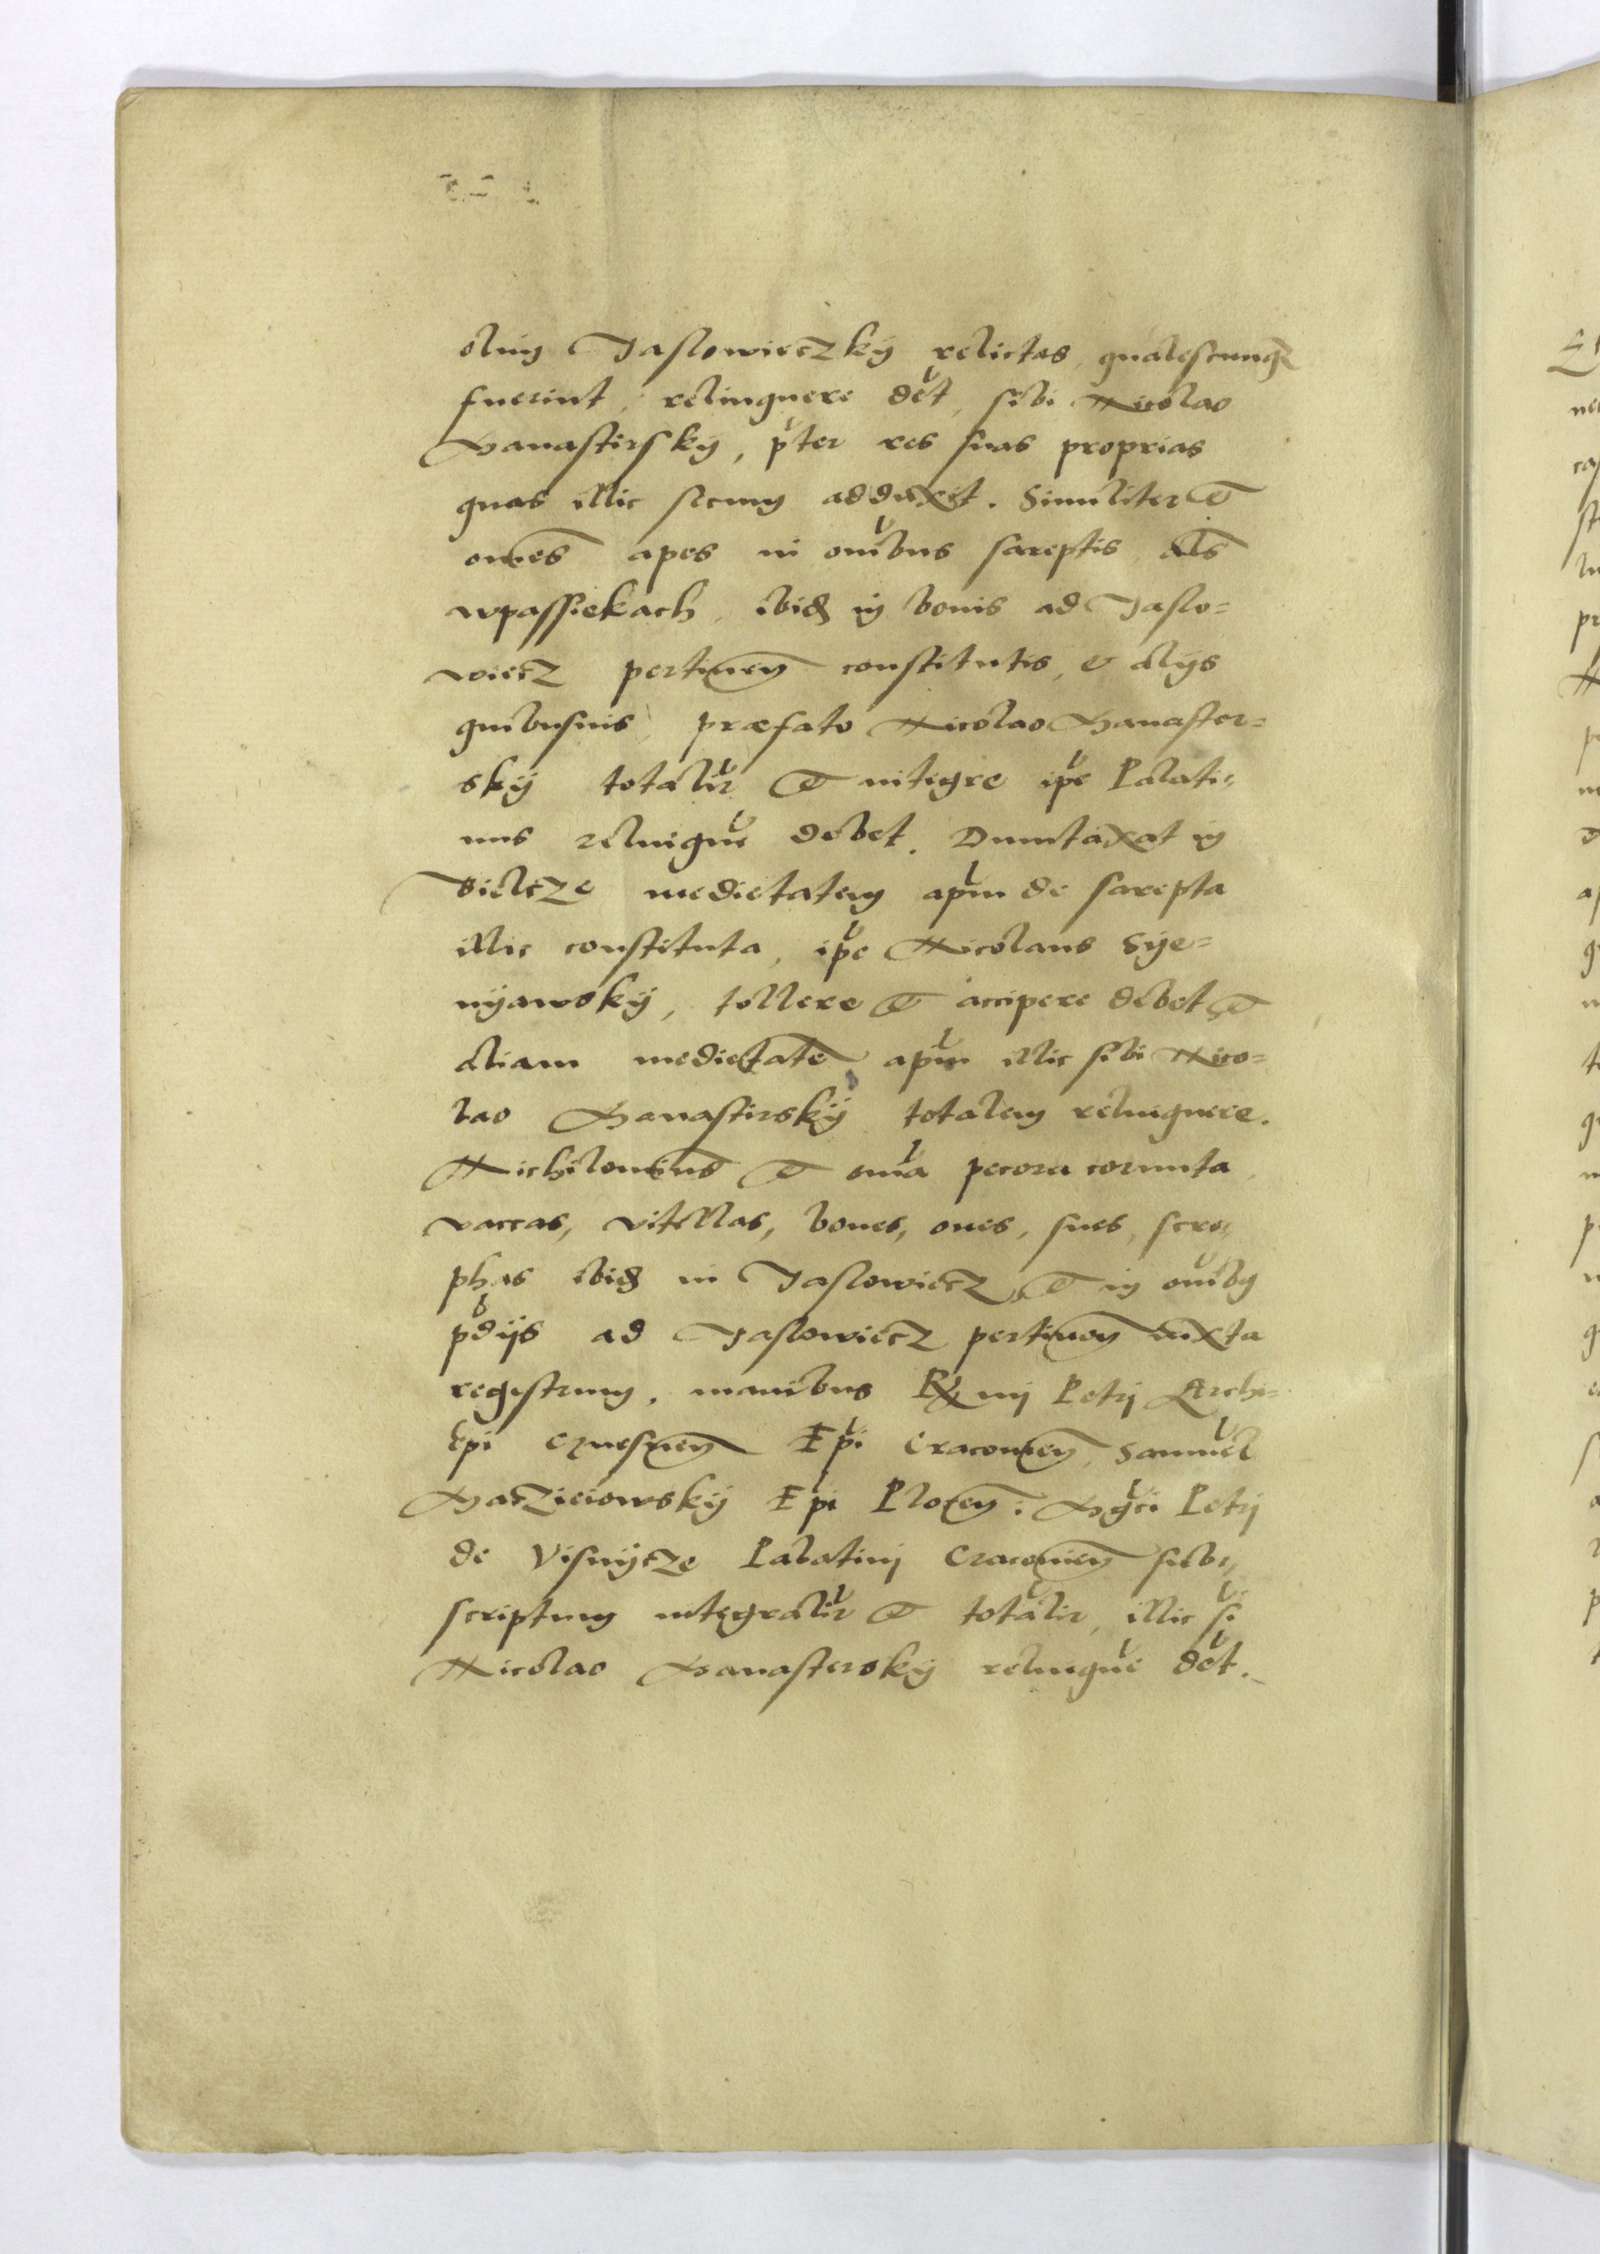 olim Jaslowieczkÿ relictas, qualescunq3
fuerint, relinquere det, sibi Nicolao
Banastirskÿ, pter res suas proprias
quas illic secum adduxit. Similiter et
omes apes in omibus sareptis als
wpassiekach, ibid in bonis ad Jaslo=
wiecz pertinen constitutis, & alÿs
quibusuis præfato Nicolao Banaster=
skÿ totalir et integre ipe Palati=
nus relinque debet. Dumtaxat in
Bielcze medietatem apum de sarepta
illic constituta, ipe Nicolaus Sÿe=
nÿawskÿ, tollere et accipere debet et
aliam medietate apum illic sibi Nico=
lao Banastirskÿ totalem relinquere.
Nichilominus et omia pecora cornuta
vaccas, vitellas, boues, oues, sues, scro=
phas ibid in Jaslowiecz, et in omibg
pdÿs ad Jaslowiecz pertinen iuxta
registrum, manibus Rxmi Petri Archi=
Epi Gznesnen Epi Cracouien Samuel
Macziciowskÿ Epi Plocen: Mgci Petri
de Visnÿcze Palatini Cracouien sub=
scriptum integralir et totalir, illic si
Nicolao Banasterskÿ relinque det.